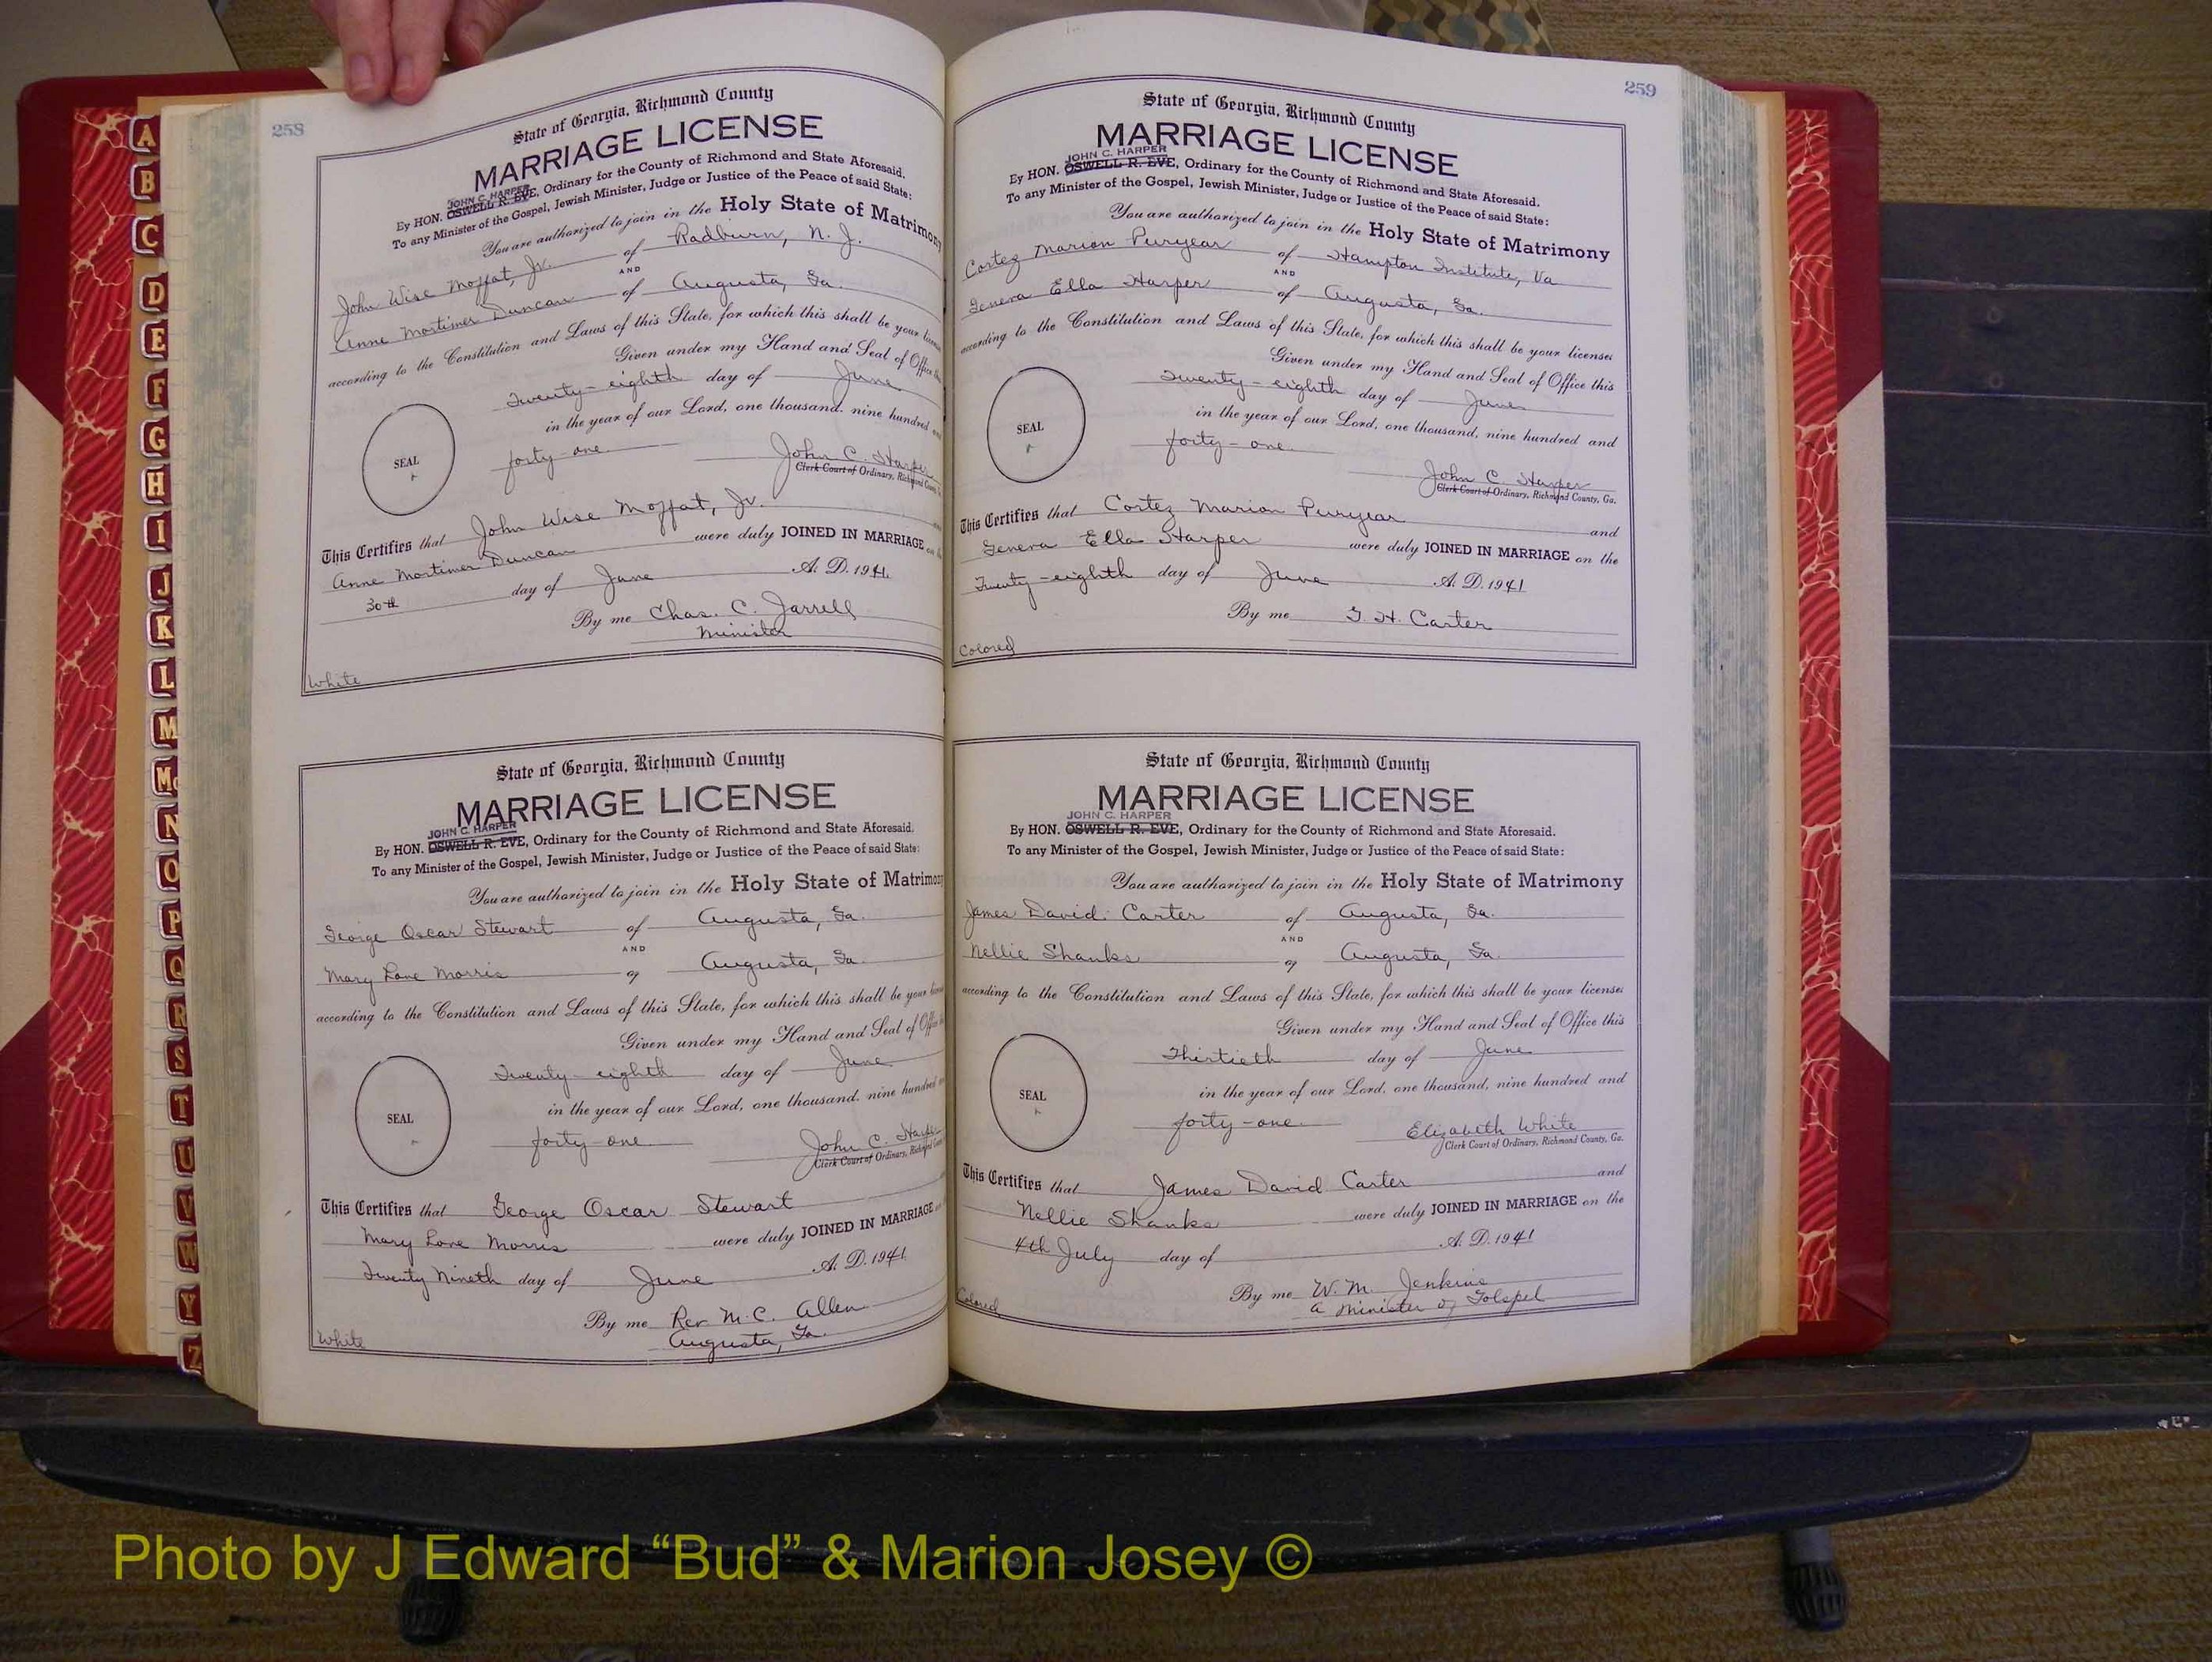 258
State of Georgia, Richmond County
MARRIAGE LICENSE
JOHN C. HARPER
By HON. OSWELL R. EVE, Ordinary for the County of Richmond and State Aforesaid.
To any Minister of the Gospel, Jewish Minister, Judge or Justice of the Peace of said State:
You are authorized to join in the Holy State of Matrimony
John Wise Moffat, Jr. of Radburn, N. J.
AND
Anne Mortimer Duncan of Augusta, Ga.
according to the Constitution and Laws of this State, for which this shall be your license
Given under my Hand and Seal of Office this
Twenty-eighth day of June
in the year of our Lord, one thousand, nine hundred and
SEAL
forty-one
John C. Harper
Clerk Court of Ordinary, Richmond County, Ga.
This Certifies that John Wise Moffat, Jr.
Anne Mortimer Duncan were duly JOINED IN MARRIAGE on
30th day of June A. D. 1941
By me Chas. C. Jarrell
Minister
White
State of Georgia, Richmond County
MARRIAGE LICENSE
JOHN C. HARPER
By HON. OSWELL R. EVE, Ordinary for the County of Richmond and State Aforesaid.
To any Minister of the Gospel, Jewish Minister, Judge or Justice of the Peace of said State:
You are authorized to join in the Holy State of Matrimony
George Oscar Stewart of Augusta, Ga.
AND
Mary Love Morris of Augusta, Ga.
according to the Constitution and Laws of this State, for which this shall be your license
Given under my Hand and Seal of Office
Twenty-eighth day of June
in the year of our Lord, one thousand, nine hundred
SEAL
forty-one
John C. Harper
Clerk Court of Ordinary, Richmond County
This Certifies that George Oscar Stewart
Mary Love Morris were duly JOINED IN MARRIAGE
Twenty Nineth day of June A. D. 1941
By me Rev M. C. Allen
Augusta, Ga.
White
259
State of Georgia, Richmond County
MARRIAGE LICENSE
JOHN C. HARPER
By HON. OSWELL R. EVE, Ordinary for the County of Richmond and State Aforesaid.
To any Minister of the Gospel, Jewish Minister, Judge or Justice of the Peace of said State:
You are authorized to join in the Holy State of Matrimony
Cortez Marion Puryear of Hampton Institute, Va
AND
Geneva Ella Harper of Augusta, Ga.
according to the Constitution and Laws of this State, for which this shall be your license
Given under my Hand and Seal of Office this
Twenty-eighth day of June
in the year of our Lord, one thousand, nine hundred and
SEAL
forty-one
John C. Harper
Clerk Court of Ordinary, Richmond County, Ga.
This Certifies that Cortez Marion Puryear and
Geneva Ella Harper were duly JOINED IN MARRIAGE on the
Twenty-eighth day of June A. D. 1941
By me G. H. Carter
Colored
State of Georgia, Richmond County
MARRIAGE LICENSE
JOHN C. HARPER
By HON. OSWELL R. EVE, Ordinary for the County of Richmond and State Aforesaid.
To any Minister of the Gospel, Jewish Minister, Judge or Justice of the Peace of said State:
You are authorized to join in the Holy State of Matrimony
James David Carter of Augusta, Ga.
AND
Nellie Shanks of Augusta, Ga.
according to the Constitution and Laws of this State, for which this shall be your license
Given under my Hand and Seal of Office this
Thirtieth day of June
in the year of our Lord, one thousand, nine hundred and
SEAL
forty-one
Elizabeth White
Clerk Court of Ordinary, Richmond County, Ga.
This Certifies that James David Carter and
Nellie Shanks were duly JOINED IN MARRIAGE on the
4th July day of A. D. 1941
By me W. M. Jenkins
a minister of Golspel
Colored
A
B
C
D
E
F
G
H
I
J
K
L
M
Mc
N
O
P
Q
R
S
T
U
V
W
Y
Z
Photo by J Edward “Bud” & Marion Josey ©